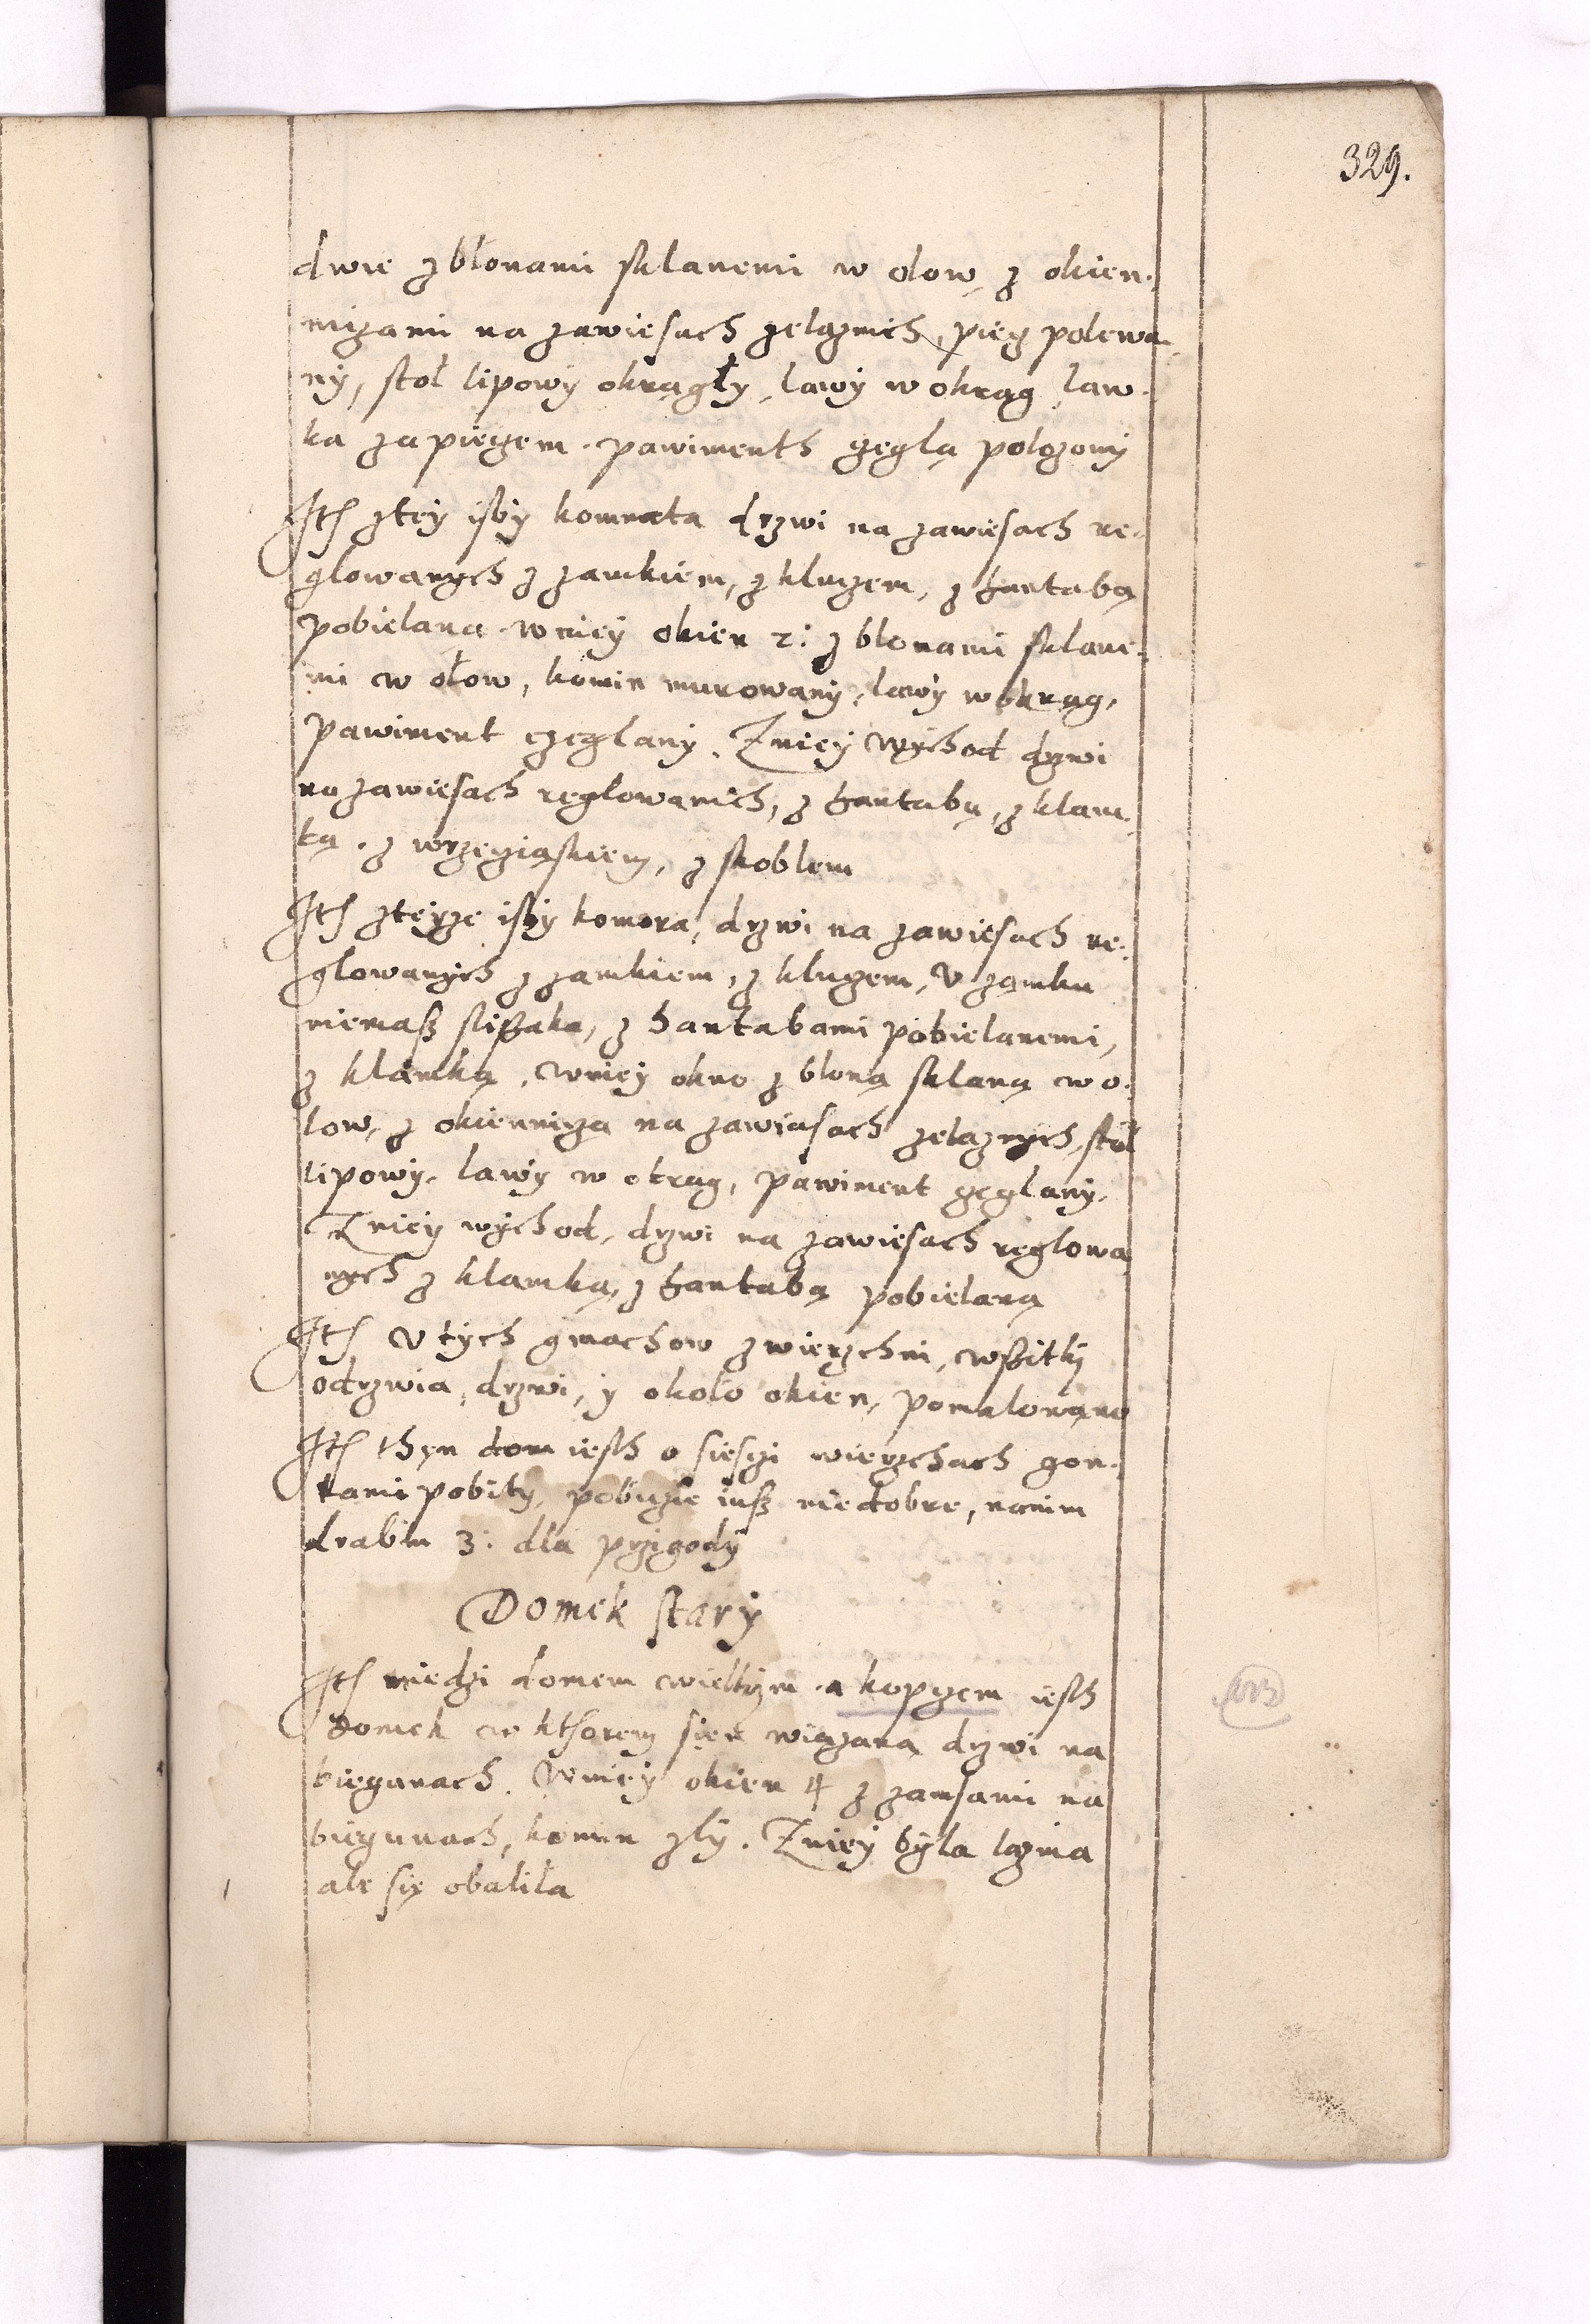 329.
dwie z błonami sklanemi w olow, z okien-
nizami na zawiesach zelaznich, piec polewa-
ny, stoł lipowy okrągły, lawy w okrąg law-
ka za piecem. pawimenth cegla polozony
Ith z tey isby komnata drzwi na zawiesach re-
glowanych z zamkiem, z kluczem, z hantabą
pobielaną. w niey okien 2: z blonami sklane-
mi w ołow, komin murowany, lawy w okrąg,
pawiment czeglany. Z niey wychod drzwi
na zawiesach reglowanich, z hantabą, z klam-
ką. z wrzeciąskiem, z skoblem
Ith z teyze isby komora, drzwi na zawiesach re-
glowanych z zamkiem, z kluczem, v zamku
niemasz sliszaka, z hantabami pobielanemi,
z klamką, w niey okno z bloną sklaną w o-
low, z okiennicą na zawiasach zelaznych, stół
lipowy, lawy w okrąg, pawiment ceglany,
Z niey wychod, drzwi na zawiesach reglowa
nych z klamką, z hantabą pobielaną
Ith v tych gmachow z wierzchni, wszitki
odrzwia, drzwi, y około okien, pomalowano
Ith then dom iesth o sieści wierzchach gon-
tami pobity, pobicie iusz niedobre, nanim
drabin 3: dla przigody
Domek stary
Ith miedzi domem wielkym a kopczem iesth
domek w kthorem sień wiązana drzwi na
biegunach. W niey okien 4 z zamsami na
biegunach, komin zly. Z niey była laznia
ale się obaliła